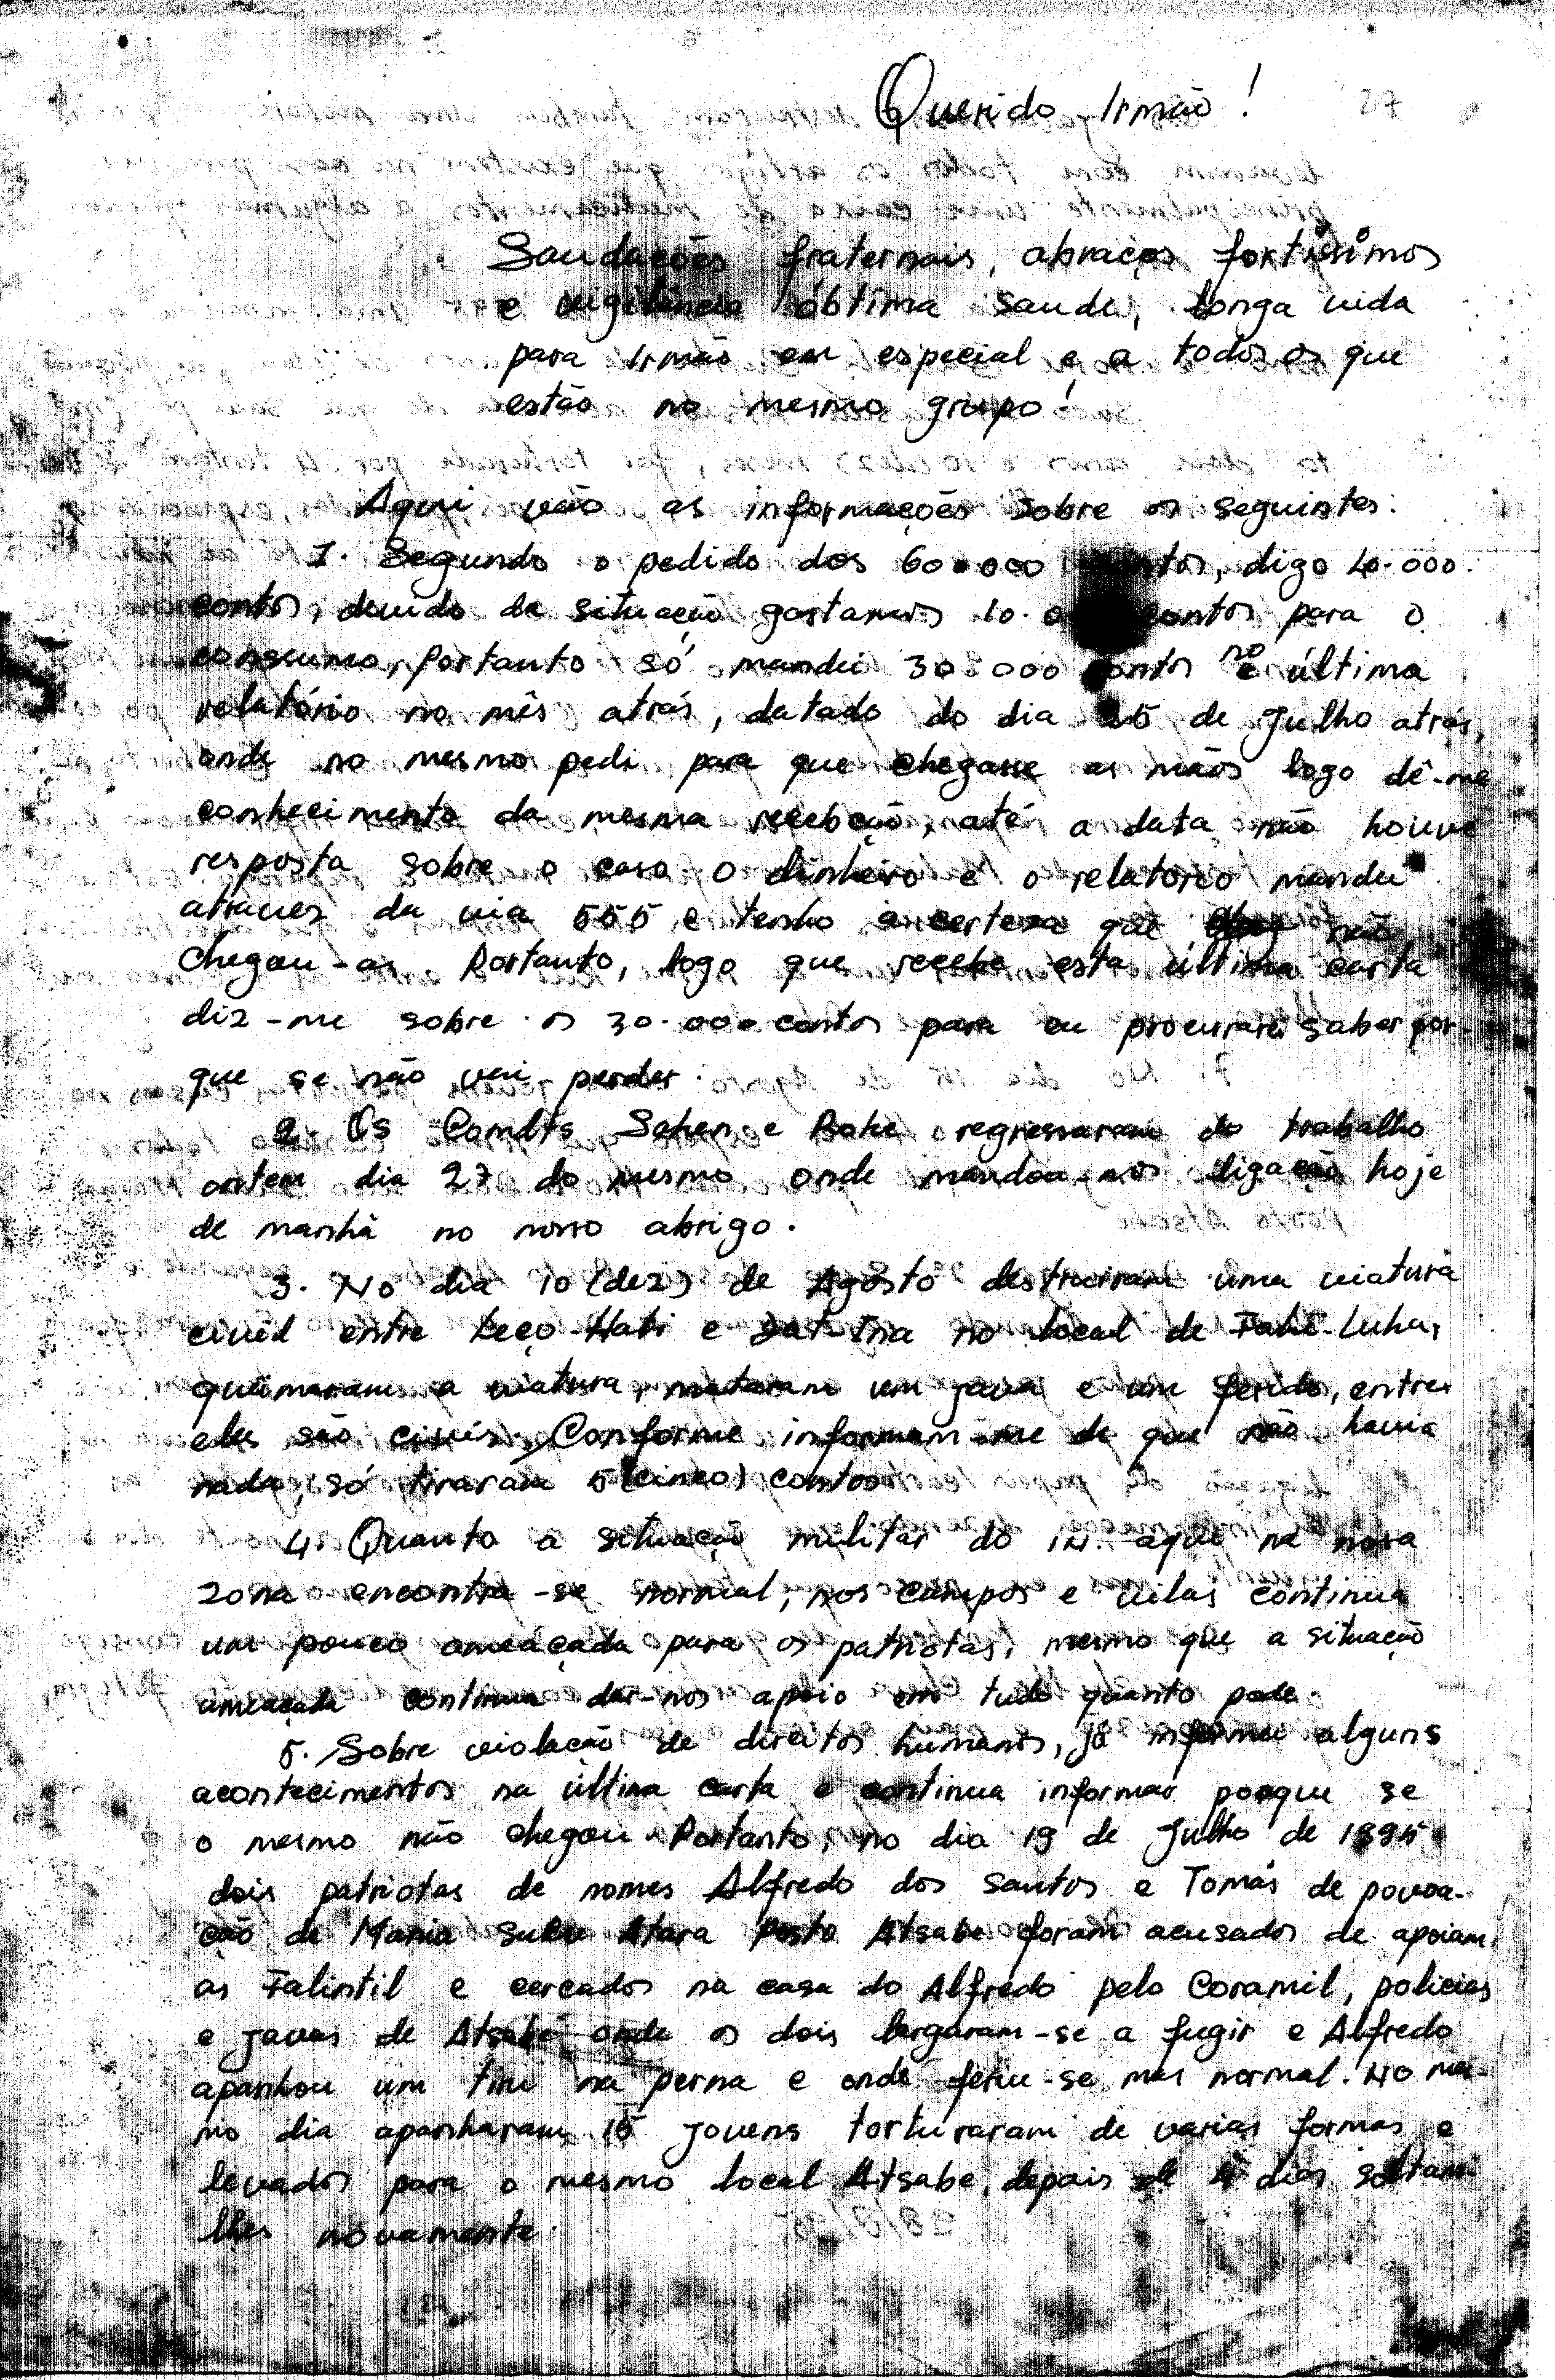 Querido Irmão!
27
Saudações fraternais, abraços fortíssimos
e vigilância óbtima saude, longa vida
para Irmão em especial e a todos os que
estão no mesmo grupo!
Aqui vão as informações sobre os seguintes:
1. Segundo o pedido dos 60.000 contos, digo 40.000
contos, devido da situação gastamos 10.000 contos para o
consumo, portanto só mandei 30.000 contos no última
relatório no mês atrás, datado do dia 25 de Julho atrás,
onde no mesmo pedi para que chegasse as mãos logo dê-me
conhecimento da mesma recebção, até a data não houve
resposta sobre o caso o dinheiro e o relatorio mandei
atraves da via 555 e tenho a certeza que não
chegou-as. Portanto, logo que recebe esta última carta
diz-me sobre os 30.000 contos para eu procurarei saber por-
que se não vai perder.
2. Os Comdts Saken e Boke regressaram do trabalho
ontem dia 27 do mesmo onde mandou-nos ligação hoje
de manhã no nosso abrigo.
3. No dia 10 (dez) de Agôsto destruiram uma viatura
civil entre Leço-Hati e Dat-Ina no local de Fahi-Luha,
queimaram a viatura, mataram um java e um ferido, entre
eles são civís. Conforme informam-me de que não havia
nada, só tiraram 5 (cinco) contos
4. Quanto a situação militar do IN. aqui na nossa
zona encontra-se normal, nos campos e vilas continua
um pouco ameaçada para os patriotas, mesmo que a situação
ameaçada continua dar-nos apoio em tudo quanto pode.
5. Sobre violação de direitos humanos, já informei alguns
acontecimentos na última carta e continua informar porque se
o mesmo não chegou. Portanto, no dia 19 de Julho de 1995
dois patriotas de nomes Alfredo dos Santos e Tomás de povoa-
ção de Mania suku Atara Posto Atsabe foram acusados de apoiam
as Falintil e cercados na casa do Alfredo pelo Coramil, policias
e javas de Atsabe onde os dois largaram-se a fugir e Alfredo
apanhou um tiro na perna e onde feriu-se mas normal. No mes-
mo dia apanharam 15 jovens torturaram de varias formas e
levados para o mesmo local Atsabe, depois de 4 dias soltam-
lhes novamente.